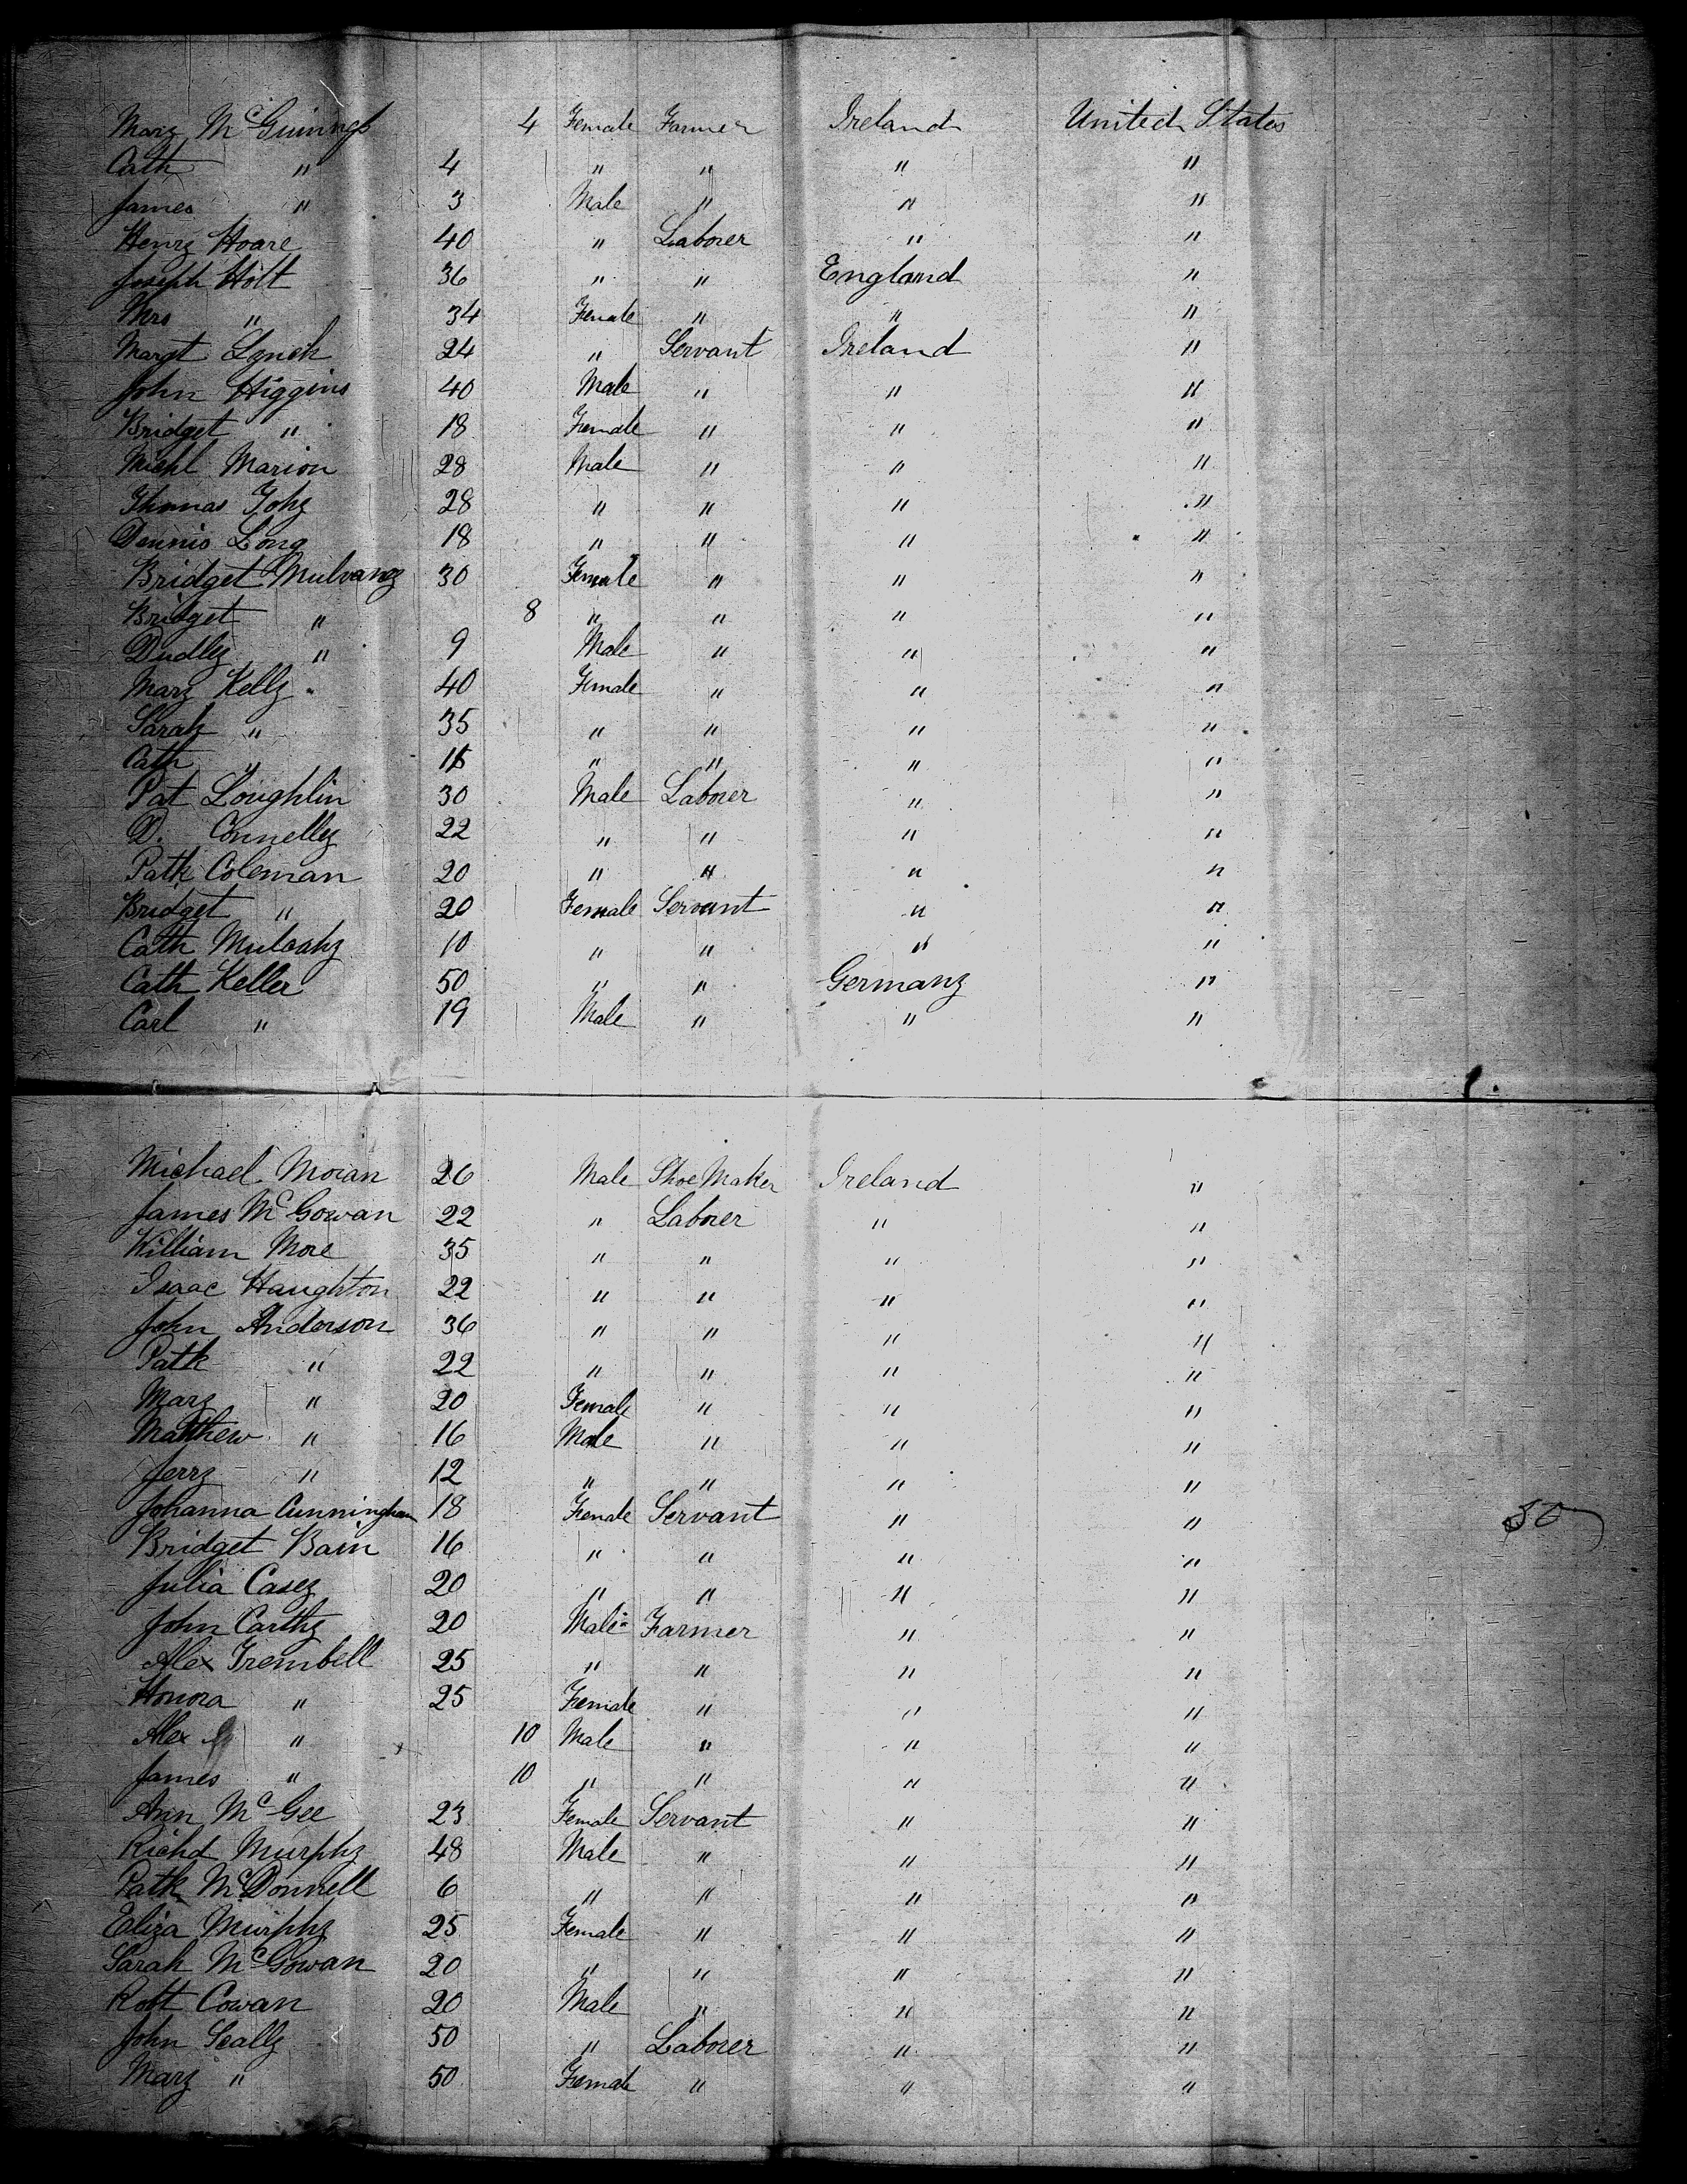 Mary McGuinness 4 Female Farmer Ireland United States
Cath " 4 " " " "
James " 3 Male " " "
Henry Hoare 40 " Laborer " "
Joseph Holt 36 " " England "
Mrs " 34 Female " " "
Margt Lynch 24 " Servant Ireland "
John Higgins 40 Male " " "
Bridget " 18 Female " " "
Michl Marion 28 Male " " "
Thomas 28 " " " "
Dennis Long 18 " " " "
Bridget Mulvany 30 Female " " "
Bridget " 8 " " " "
Dudley " 9 Male " " "
Mary Kelly 40 Female " " "
Sarah " 35 " " " "
Cath " " " " "
Pat Loughlin 30 Male Laborer " "
D. Connelly 22 " " " "
Patk Coleman 20 " " " "
Bridget " 20 Female Servant " "
Cath Mulcahy 10 " " " "
Cath Keller 50 " " Germany "
Carl " 19 Male " " "
Michael Moran 26 Male Shoe Maker Ireland "
James McGowan 22 " Laborer " "
William More 35 " " " "
Isaac Haughton 22 " " " "
John Anderson 36 " " " "
Patk " 22 " " " "
Mary " 20 Female " " "
Matthew " 16 Male " " "
Jerry " 12 " " " "
Johanna Cunningham 18 Female Servant " "
Bridget Bain 16 " " " "
Julia Casey 20 " " " "
John Carthy 20 Male Farmer " "
Alex Trembell 25 " " " "
Honora " 25 Female " " "
Alex " 10 Male " " "
James " 10 " " " "
Ann McGee 23 Female Servant " "
Richd Murphy 48 Male " " "
Patk McDonnell 6 " " " "
Eliza Murphy 25 Female " " "
Sarah McGowan 20 " " " "
Robt Cowan 20 Male " " "
John Scally 50 " Laborer " "
Mary " 50 Female " " "
50